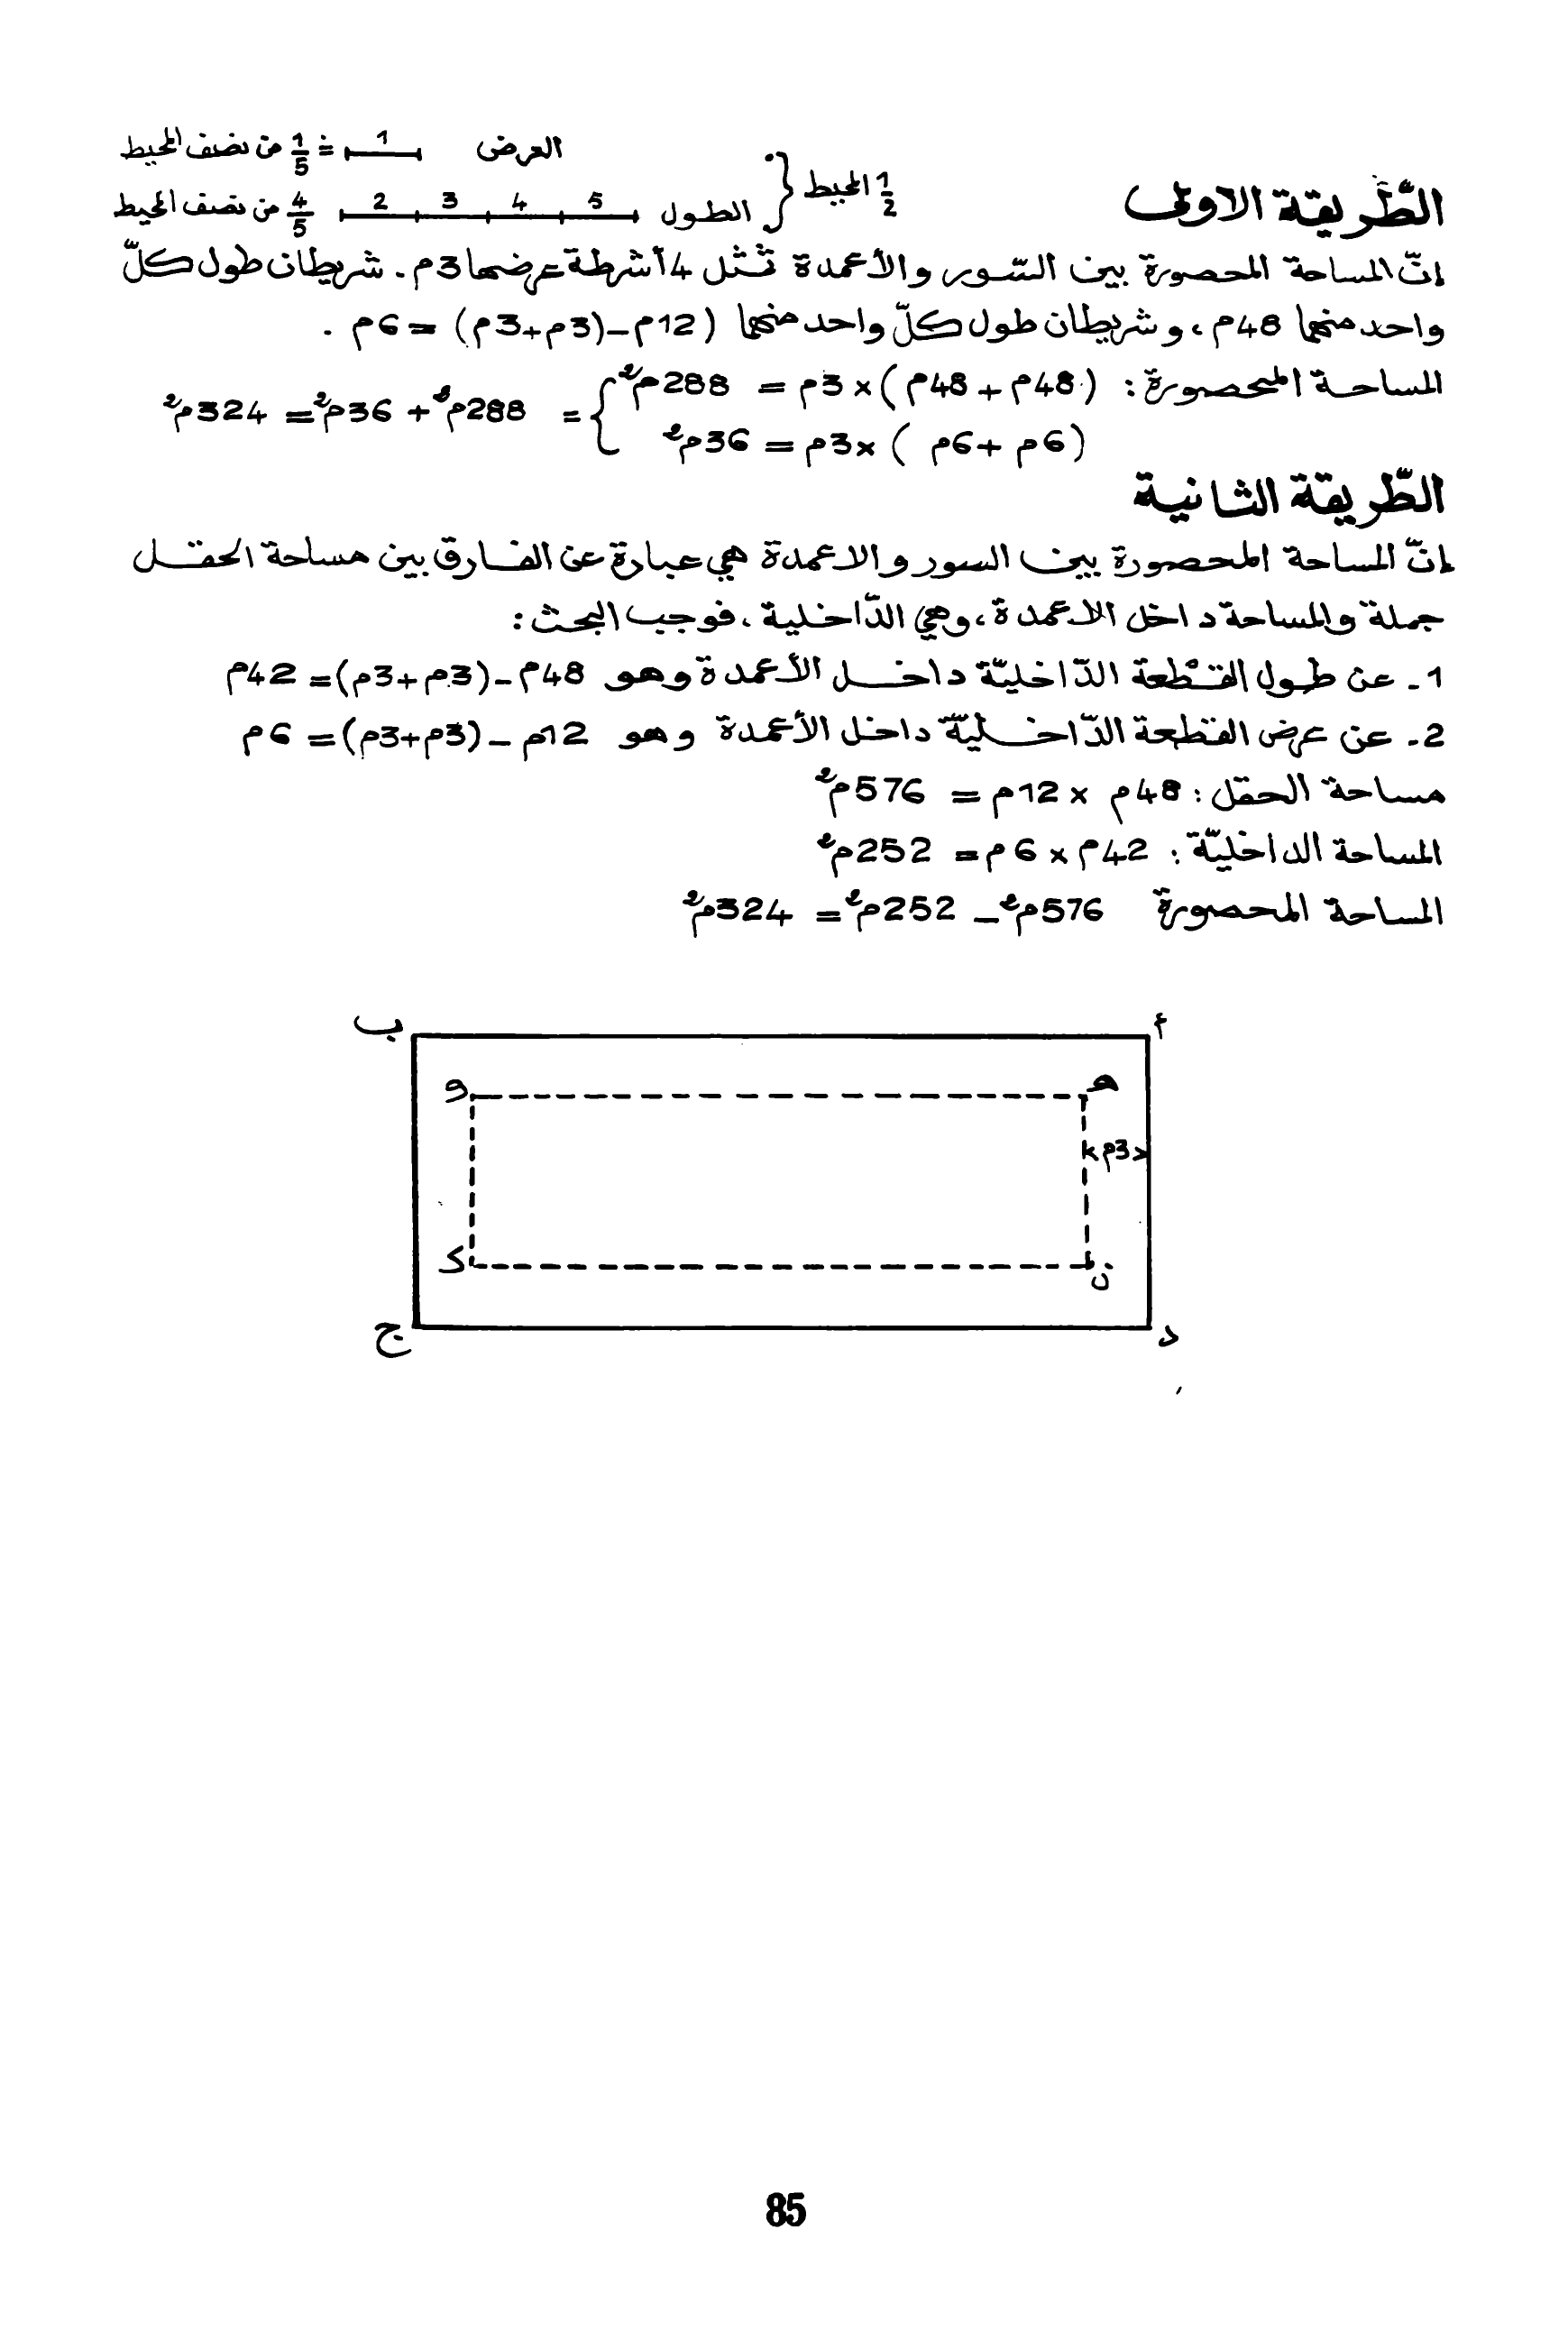 العرض 1 = 1/5 من نصف المحيط
الطّريقة الاولى 1/2 المحيط { الطول 2 3 4 5 4/5 من نصف المحيط
إنّ المساحة المحصورة بين السّور والأعمدة تمثل 4 أشرطة عرضها 3م. شريطان طول كلّ
واحد منهما 48م، وشريطان طول كلّ واحد منهما (12م-(3م+3م) = 6م.
المساحة المحصورة: (48م + 48م) × 3م = 288م²
(6م + 6م) × 3م = 36م²
} = 288م² + 36م² = 324م²
الطّريقة الثانية
إنّ المساحة المحصورة بين السور والاعمدة هي عبارة عن الفارق بين مساحة الحقل
جملة والمساحة داخل الاعمدة، وهي الدّاخلية، فوجب البحث:
1ـ عن طول القطعة الدّاخليّة داخل الأعمدة وهو 48م-(3م+3م)= 42م
2ـ عن عرض القطعة الدّاخليّة داخل الأعمدة وهو 12م-(3م+3م)= 6م
مساحة الحقل: 48م × 12م = 576م²
المساحة الداخليّة: 42م × 6م = 252م²
المساحة المحصورة 576م² - 252م² = 324م²
أ ب
هـ و
3م
ن ك
د ج
85